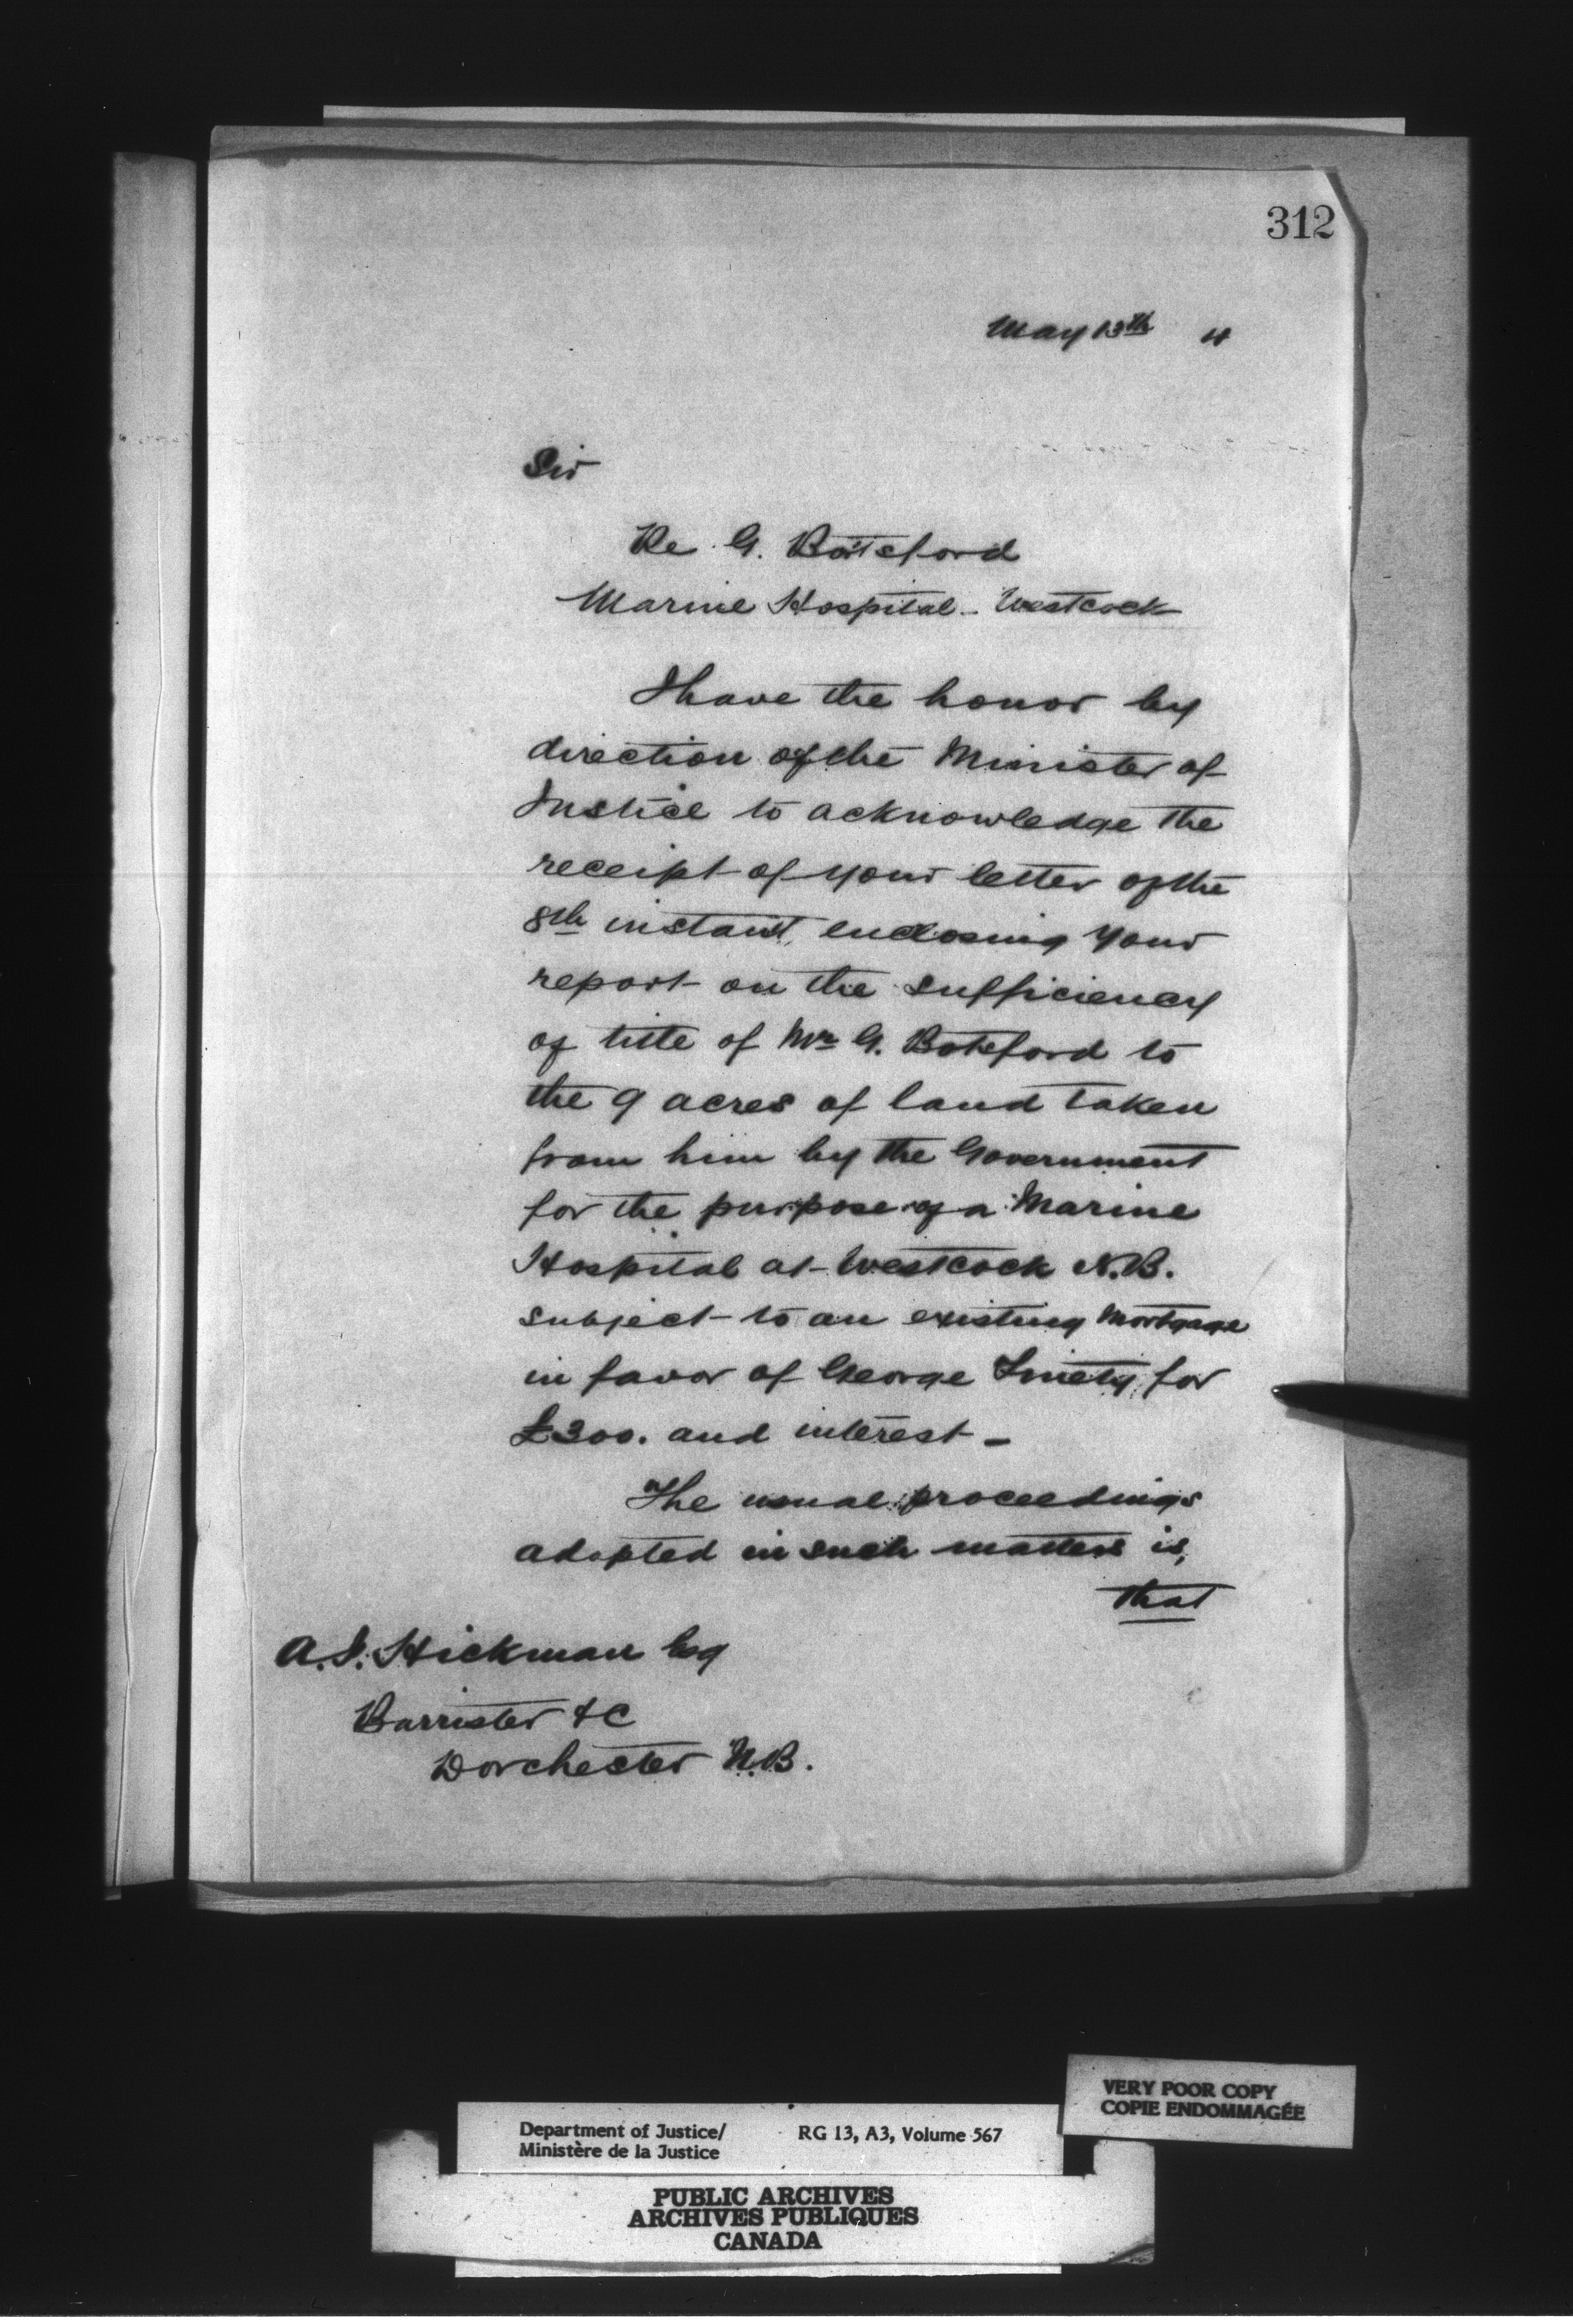 312
May 13th 4
Sir
Re G. Botsford
Marine Hospital - Westcock
I have the honor by
direction of the Minister of
Justice to acknowledge the
receipt of your letter of the
8th instant, enclosing your
report on the sufficiency
of title of Mr G. Botsford to
the 9 acres of land taken
from him by the Government
for the purpose of a Marine
Hospital at Westcock N.B.
subject to an existing Mortgage
in favor of George for
£300. and interest -
The usual proceedings
adopted in such matters is,
that
A. J. Hickman Esq
Barrister &C
Dorchester N.B.
VERY POOR COPY
COPIE ENDOMMAGÉE
Department of Justice/ RG 13, A3, Volume 567
Ministère de la Justice
PUBLIC ARCHIVES
ARCHIVES PUBLIQUES
CANADA